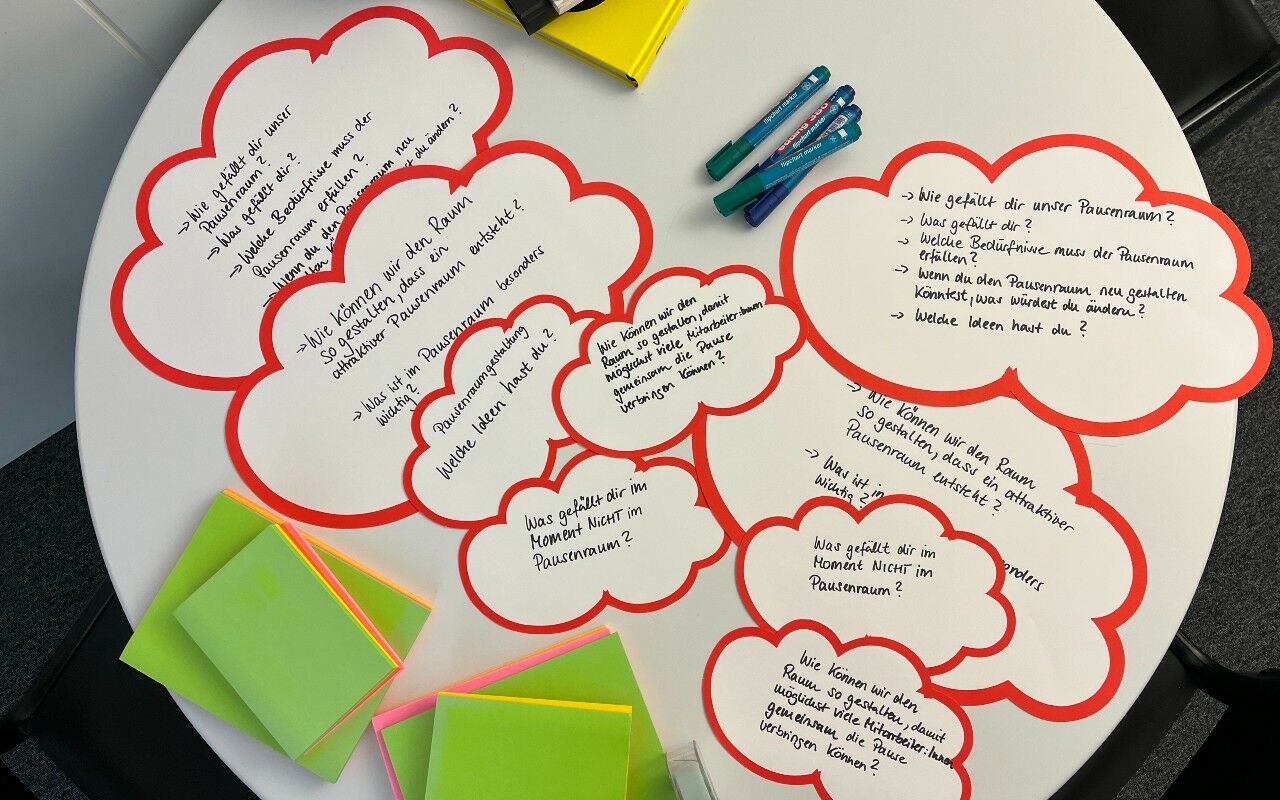 → Wie gefällt dir unser
Pausenraum?
→ Was gefällt dir?
→ Welche Bedürfnisse muss der
Pausenraum erfüllen?
→ Wenn du den Pausenraum neu
du ändern?
→ Wie können wir den Raum
so gestalten, dass ein
attraktiver Pausenraum entsteht?
→ Was ist im Pausenraum besonders
wichtig?
Pausenraumgestaltung
Welche Ideen hast du?
Wie können wir den
Raum so gestalten, damit
möglichst viele Mitarbeiter:Innen
gemeinsam die Pause
verbringen können?
Was gefällt dir im
Moment NICHT im
Pausenraum?
flipchart marker
edding 380
flipchart marker
flipchart marker
→ Wie gefällt dir unser Pausenraum?
→ Was gefällt dir?
→ Welche Bedürfnisse muss der Pausenraum
erfüllen?
→ Wenn du den Pausenraum neu gestalten
könntest, was würdest du ändern?
→ Welche Ideen hast du?
→ Wie können wir den Raum
so gestalten, dass ein attraktiver
Pausenraum entsteht?
→ Was ist in
wichtig?
Was gefällt dir im
Moment NICHT im
Pausenraum?
Wie können wir den
Raum so gestalten, damit
möglichst viele Mitarbeiter:Innen
gemeinsam die Pause
verbringen können?